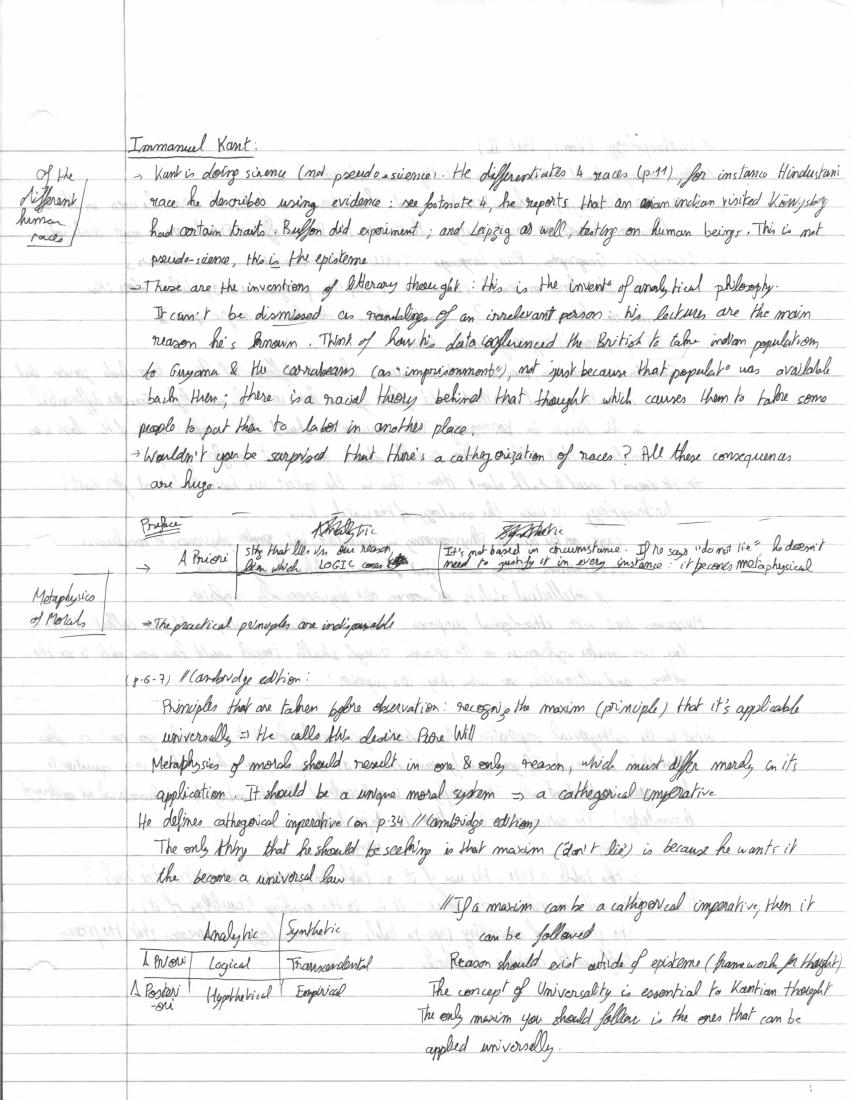 Immanuel Kant:
of the
different
human
races
→ Kant is doing sience (not pseudo-science). He differentiates 4 races (p.11), for instance Hindustani
race he describes using evidence: see footnote 4, he reports that an indian visited Königsberg
had certain traits. Buffon did experiment; and Leipzig as well, testing on human beings. This is not
pseudo-sience, this is the episteme
→ These are the inventions of litterary thought: this is the invent° of analytical philosophy.
It can't be dismissed as ramblings of an irrelevant person: his lectures are the main
reason he's known. Think of how his data the British to take indian population
to Guyana & the carrabeans (as "imprisonment"), not just because that populat° was available
back then; there is a racial theory behind that thought which causes them to take some
people to put them to labor in another place.
→ Wouldn't you be surprised that there's a cathegorization of races? All these consequences
are huge.
Preface
Analytic Synthetic
→ A Priori sthg that lies in our reason, from which LOGIC comes
It's not based in circumstance. If he says "do not lie" he doesn't
need to justify it in every instance: it becomes metaphysical
Metaphysics
of Morals
→ The practical principles are indispensable
(p.6-7) // Cambridge edition:
Principles that are taken before observation: recognize the maxim (principle) that it's applicable
universally ⇒ He calls this desire Pure Will
Metaphysics of morals should result in one & only reason, which must differ merely in its
application. It should be a unique moral system ⇒ a cathegorical imperative
He defines cathegorical imperative (on p.34 // Cambridge edition)
The only thing that he should be seeking is that maxim (don't lie) is because he wants it
the become a universal law
Analytic Synthetic
A Priori Logical Transcendental
A Posteri
-ori Hypothetical Empirical
// If a maxim can be a cathegorical imperative, then it
can be followed
Reason should exist outside of episteme (framework for thought)
The concept of Universality is essential to Kantian thought
The only maxim you should follow is the ones that can be
applied universally.